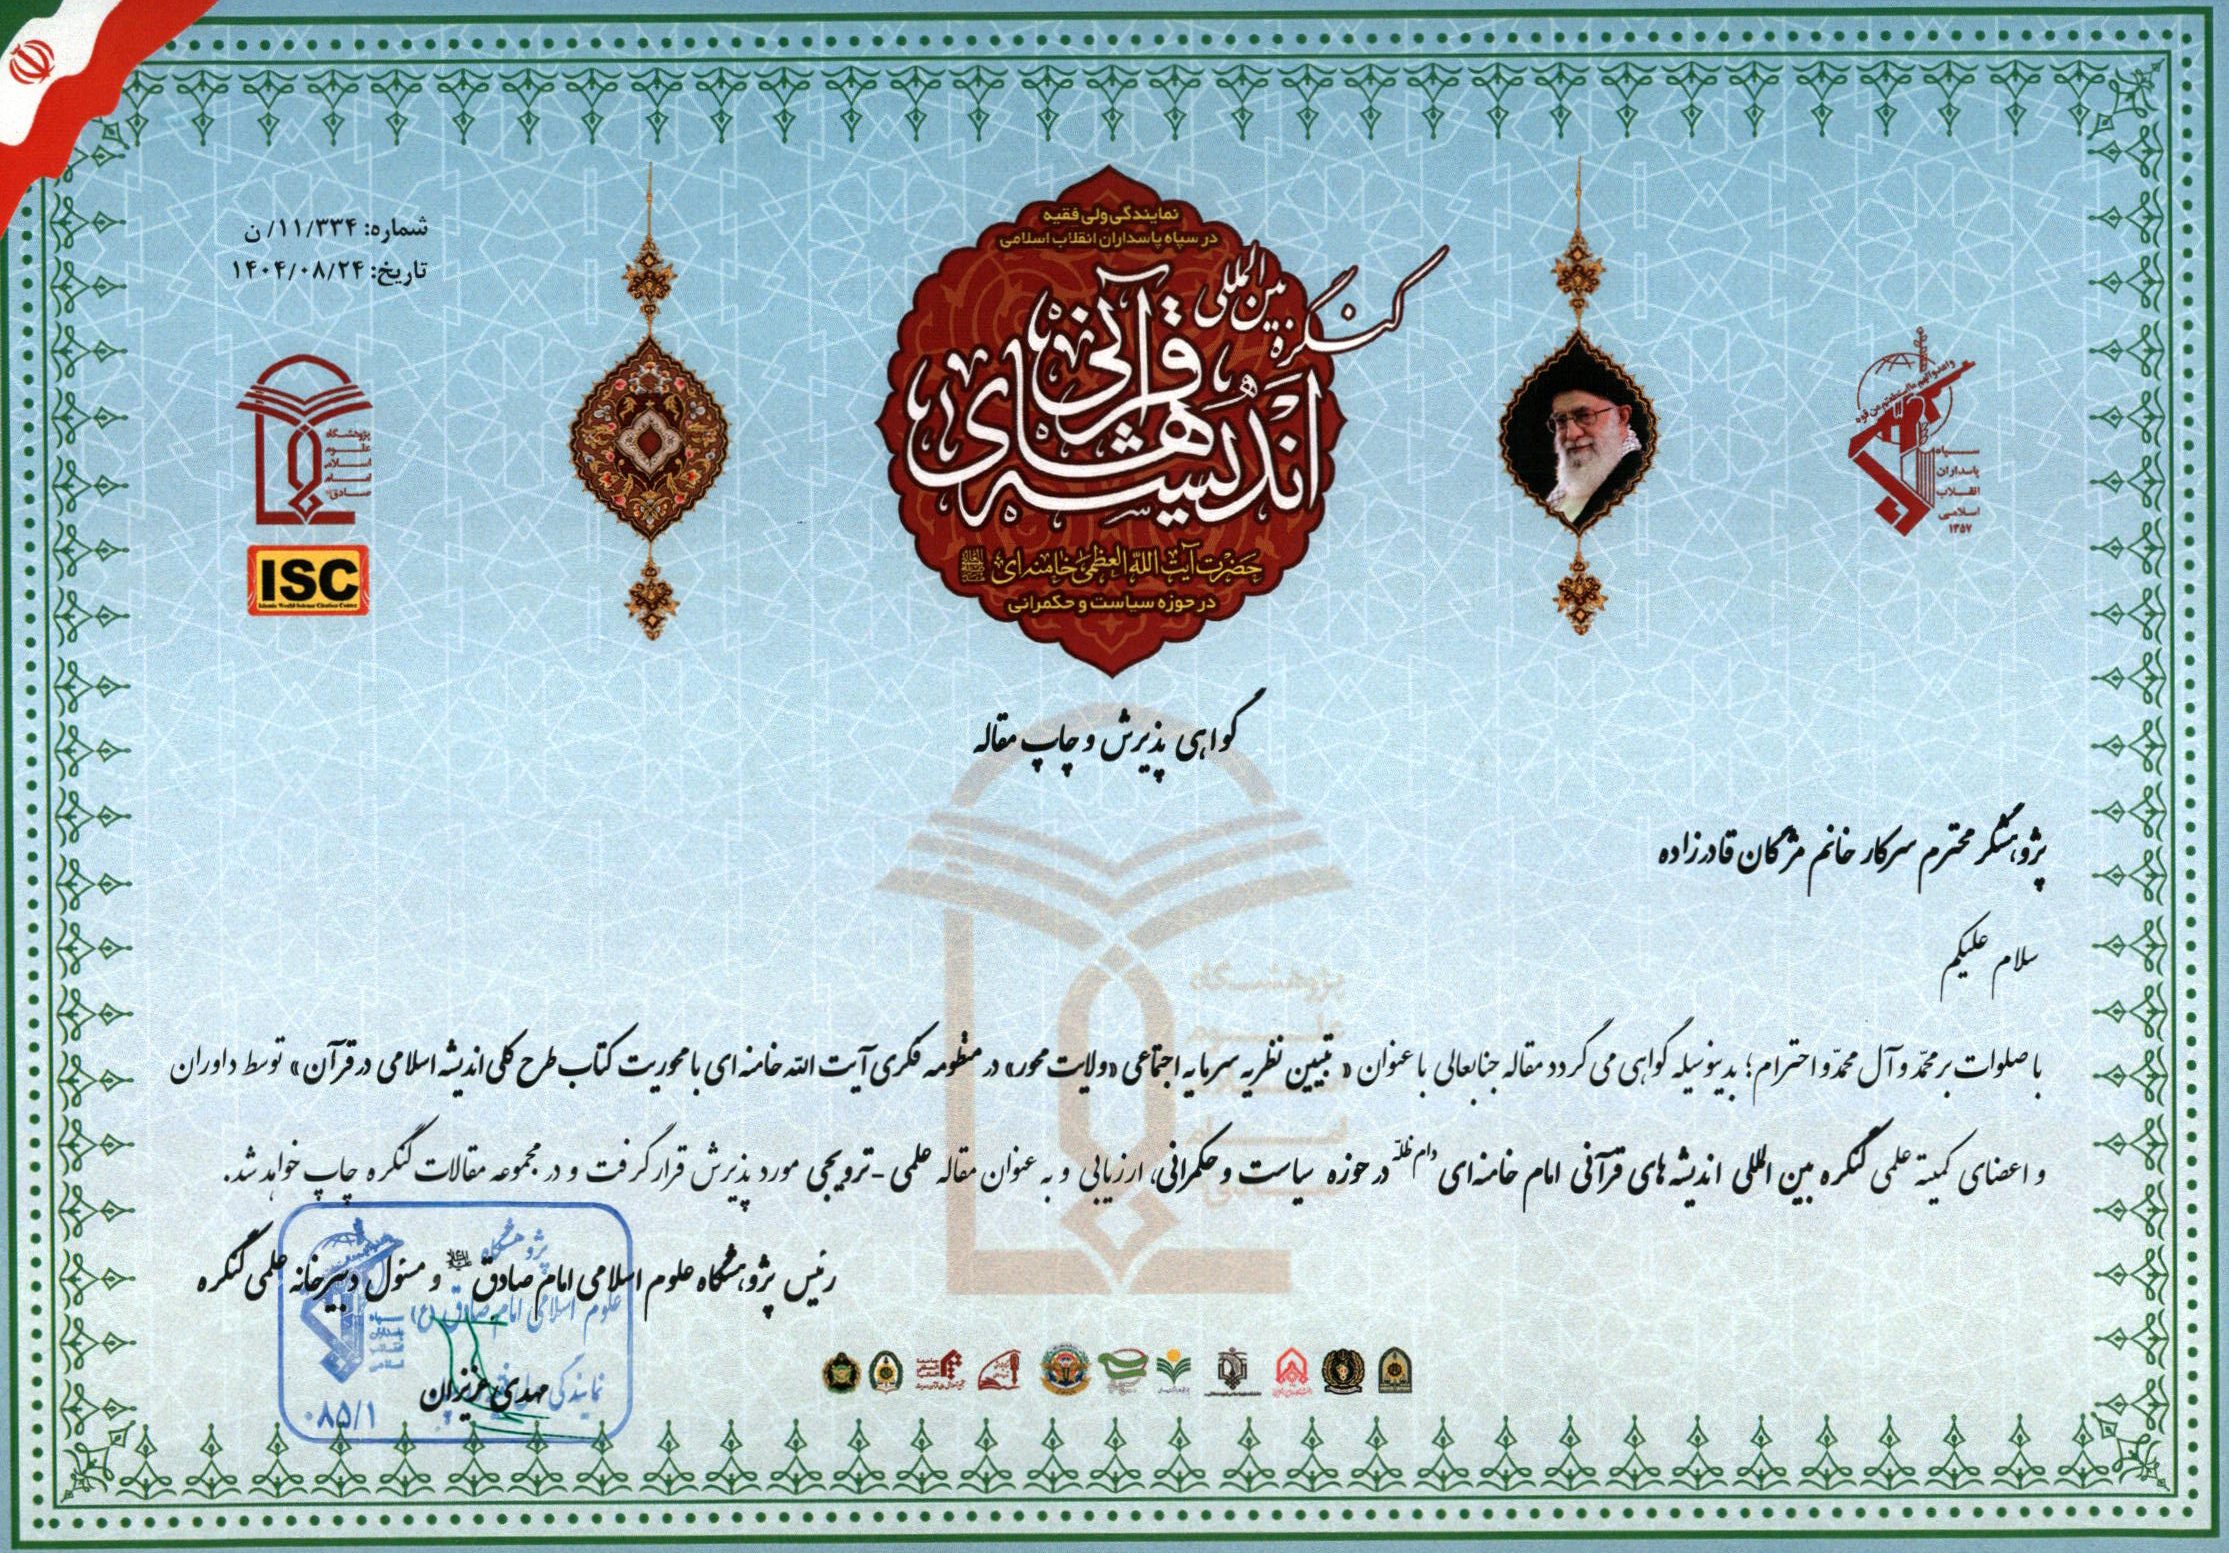 شماره: ۱۱/۳۳۴/ ن
تاریخ: ۱۴۰۴/۰۸/۲۴
نمایندگی ولی فقیه
در سپاه پاسداران انقلاب اسلامی
کنگره بین المللی
اندیشه های قرآنی
حضرت آیت الله العظمی خامنه ای
در حوزه سیاست و حکمرانی
واعدوا لهم ما استطعتم من قوه
سپاه
پاسداران
انقلاب
اسلامی
۱۳۵۷
پژوهشگاه
علوم
اسلامی
امام
صادق
ISC
Islamic World Science Citation Center
گواهی پذیرش و چاپ مقاله
پژوهشگر محترم سرکار خانم مژگان قادرزاده
سلام علیکم
با صلوات بر محمّد و آل محمّد و احترام؛ بدینوسیله گواهی می گردد مقاله جنابعالی با عنوان « تبیین نظریه سرمایه اجتماعی «ولایت محور» در منظومه فکری آیت الله خامنه ای با محوریت کتاب طرح کلی اندیشه اسلامی در قرآن» توسط داوران
و اعضای کمیته علمی کنگره بین المللی اندیشه های قرآنی امام خامنه ای دام ظلّه در حوزه سیاست و حکمرانی، ارزیابی و به عنوان مقاله علمی -ترویجی مورد پذیرش قرار گرفت و در مجموعه مقالات کنگره چاپ خواهد شد.
رئیس پژوهشگاه علوم اسلامی امام صادق و مسئول دبیرخانه علمی کنگره
مهدی عزیزان
پژوهشگاه
علوم اسلامی امام صادق (ع)
سپاه
پاسداران
انقلاب
اسلامی
نمایندگی
۰۸۵/۱